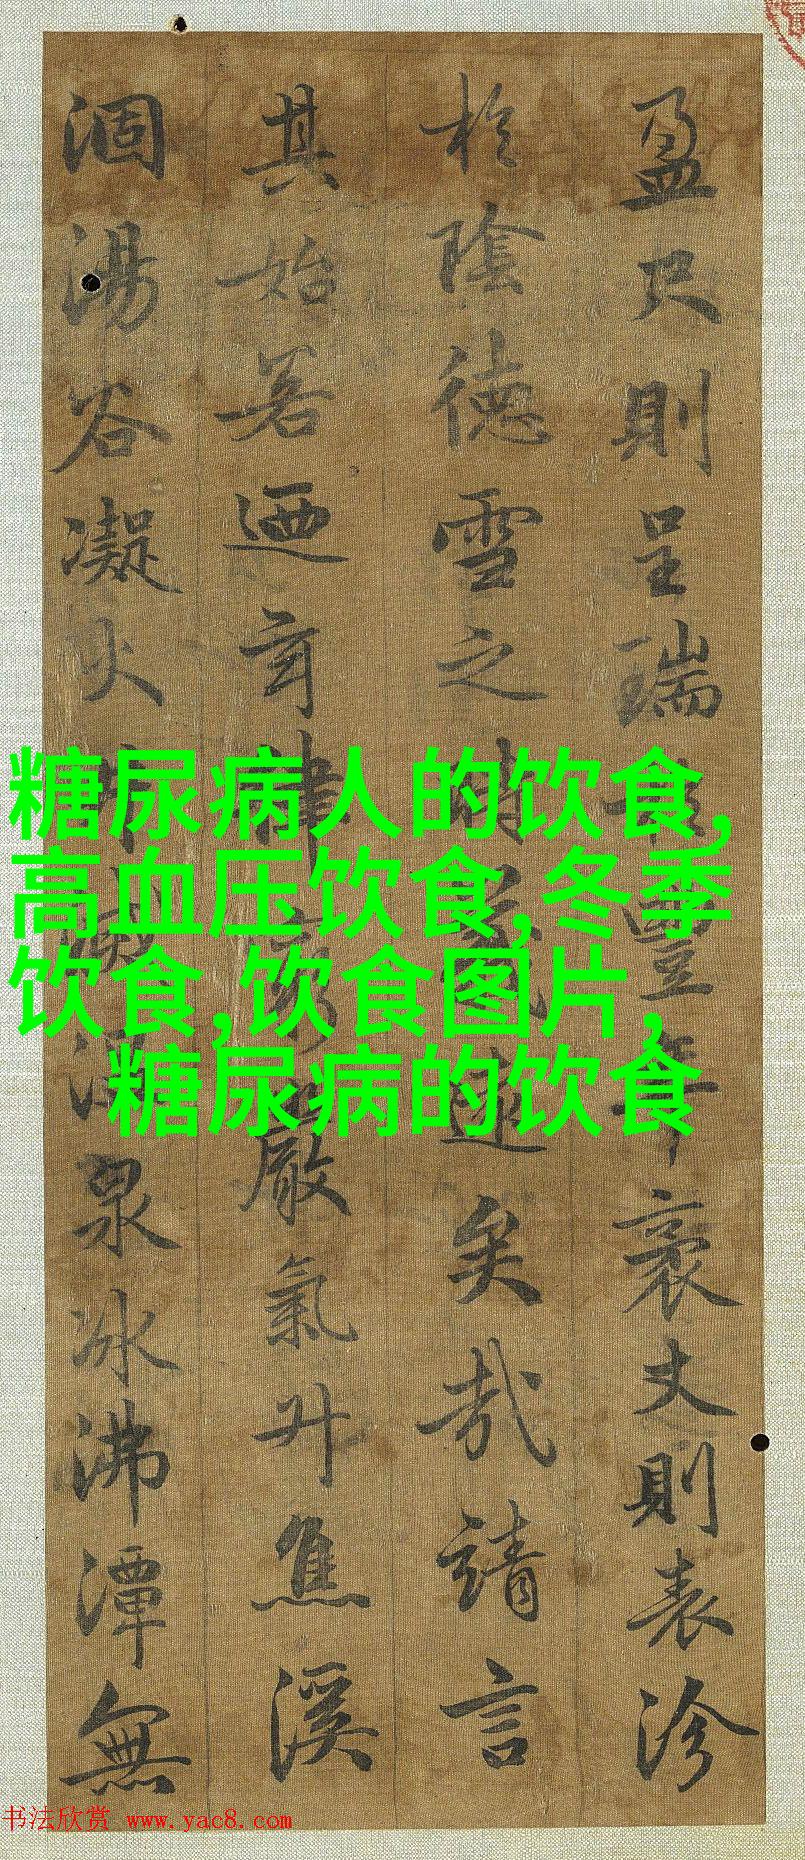 盈尺則呈瑞豐年袤丈則表沴
於陰德雪之遠矣哉請言
其始若迺玄律嚴氣升焦溪
涸湯谷凝火泉冰沸潭無
糖尿病人的饮食,
高血压饮食,冬季
饮食,饮食图片,
糖尿病的饮食
书法欣赏 www.yac8.com